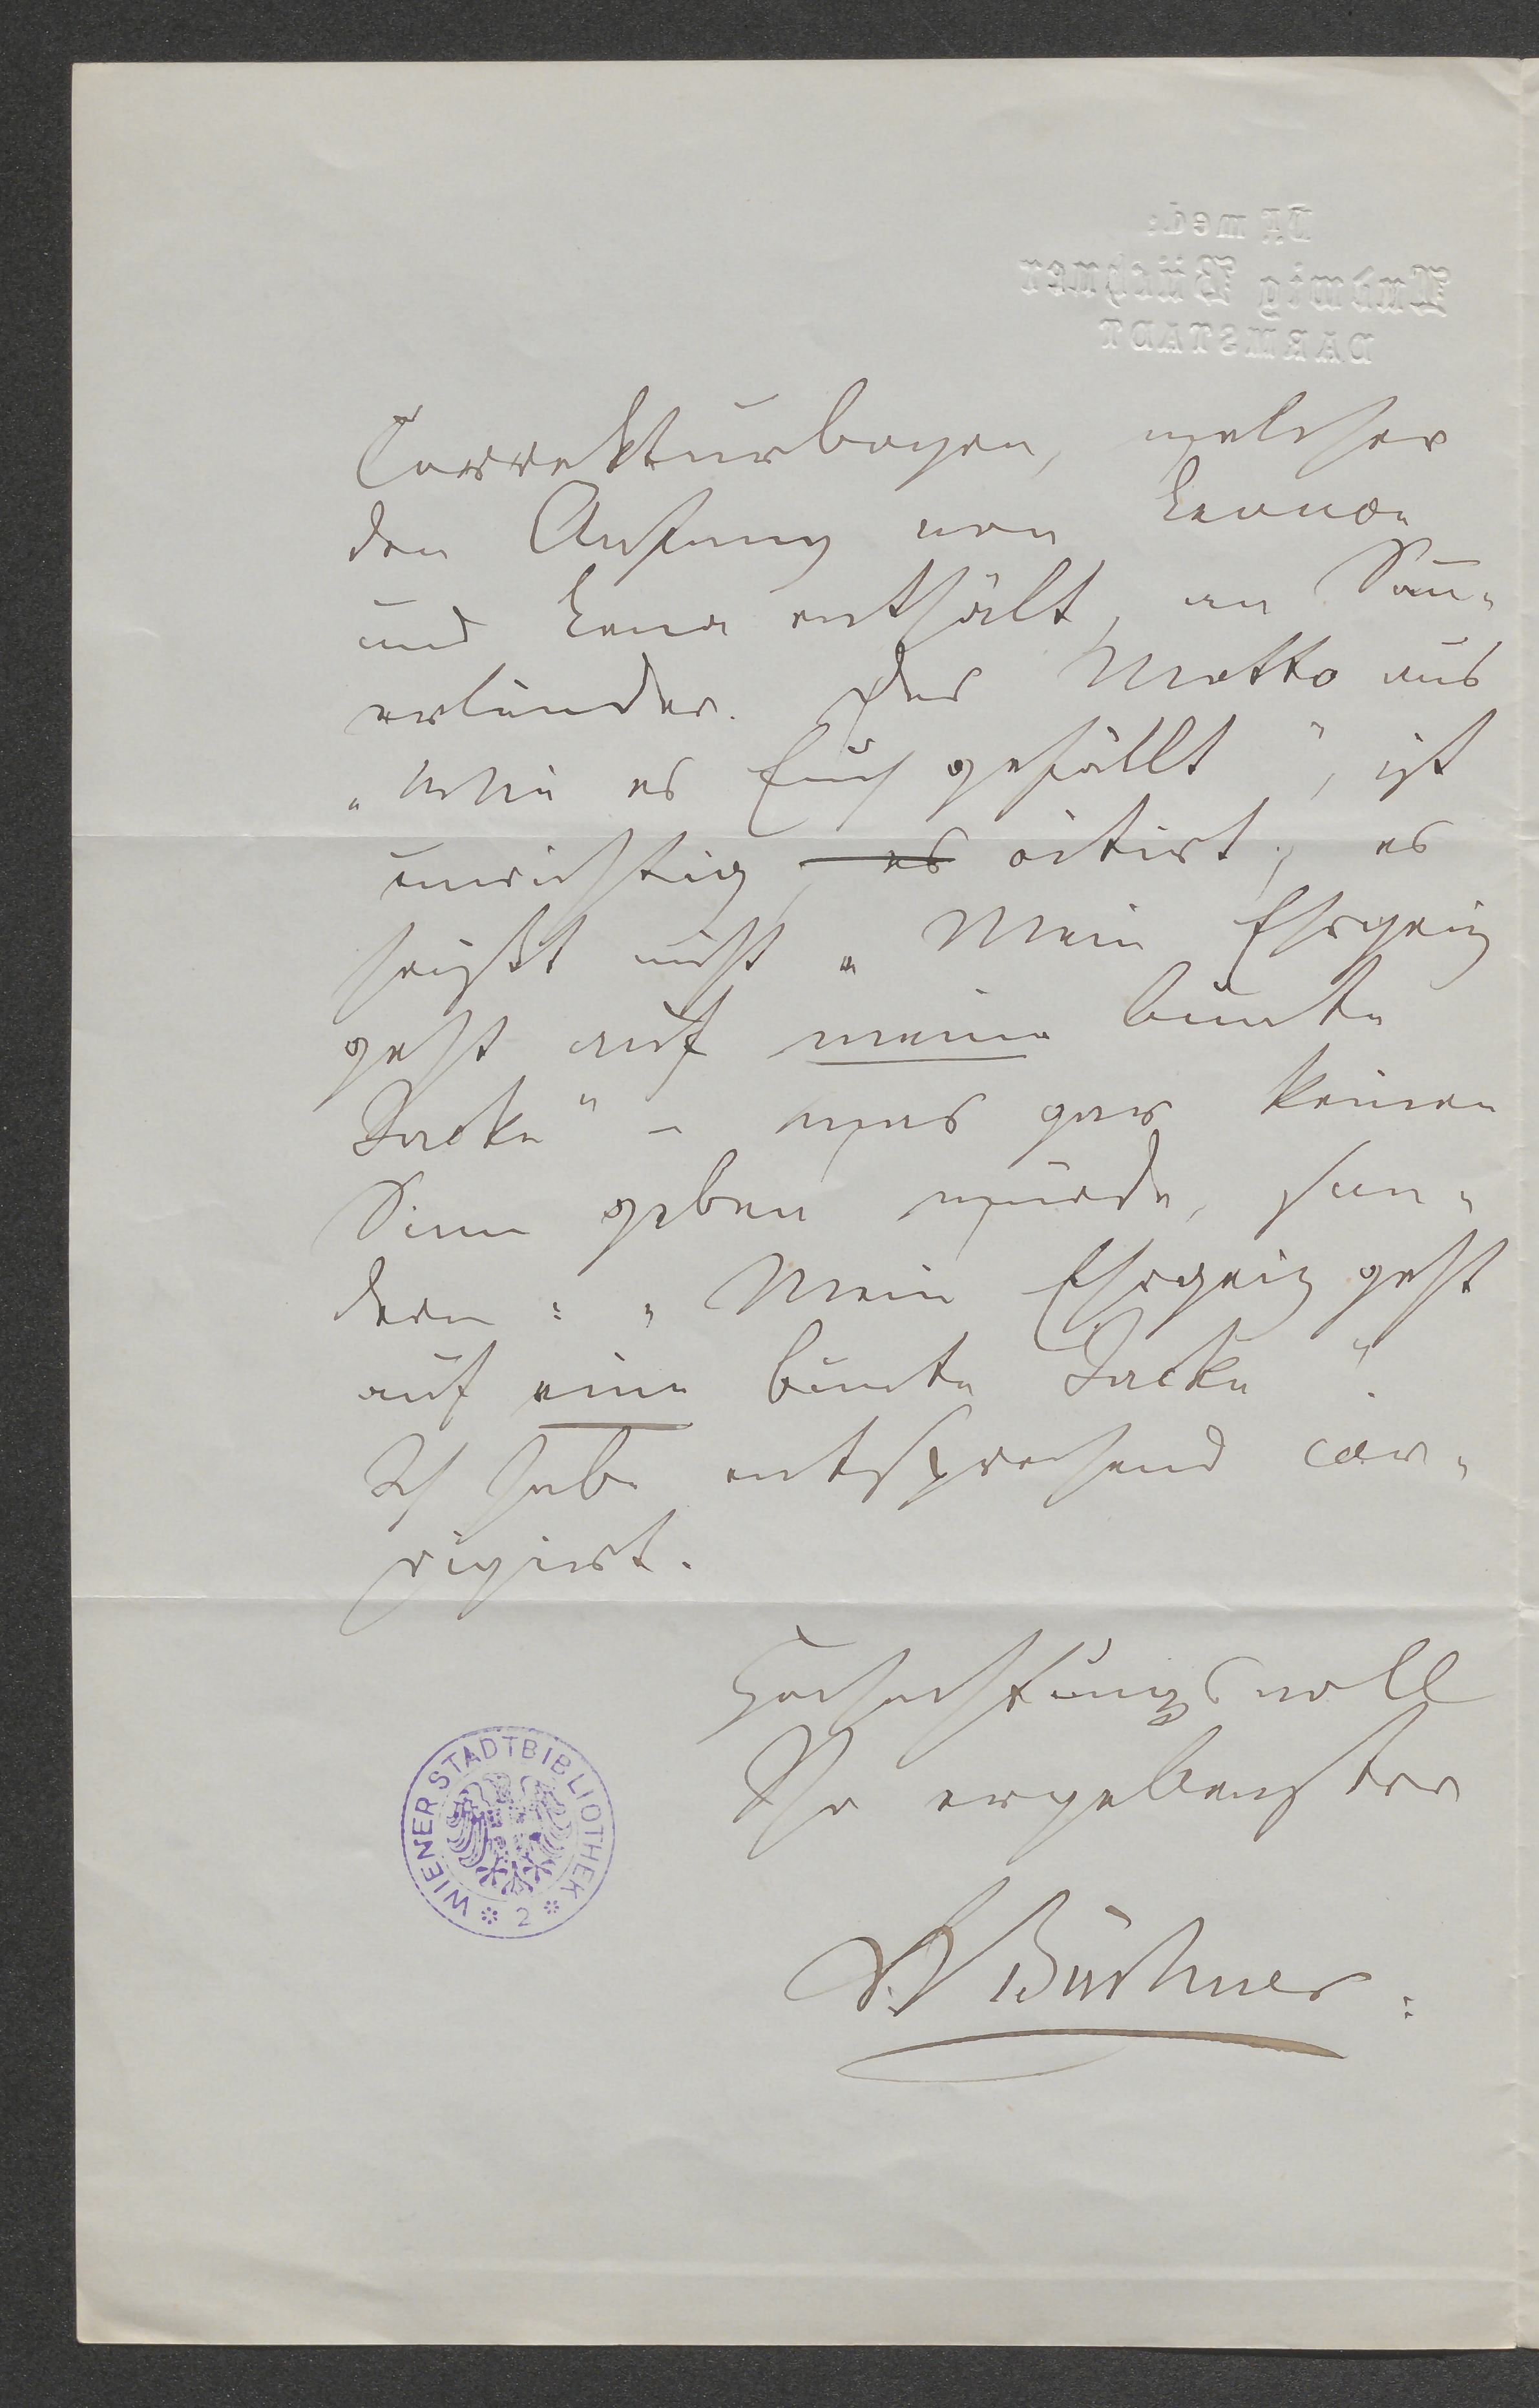 Dr med.
Ludwig Büchner
DARMSTADT
Correkturbogen, welcher
den Anfang von Leonce
und Lena enthält, an Sau-
erländer. Das Motto aus
„Wie es Euch gefällt", ist
unrichtig, es citirt; es
heißt nicht „Mein Ehrgeiz
geht auf meine bunte
Jacke" – was gar keinen
Sinn geben würde, son-
dern: „Mein Ehrgeiz geht
auf eine bunte Jacke".
Ich habe entsprechend cor-
rigirt.
Hochachtungsvoll
Ihr ergebenster
Dr L Büchner.
WIENER STADTBIBLIOTHEK
2